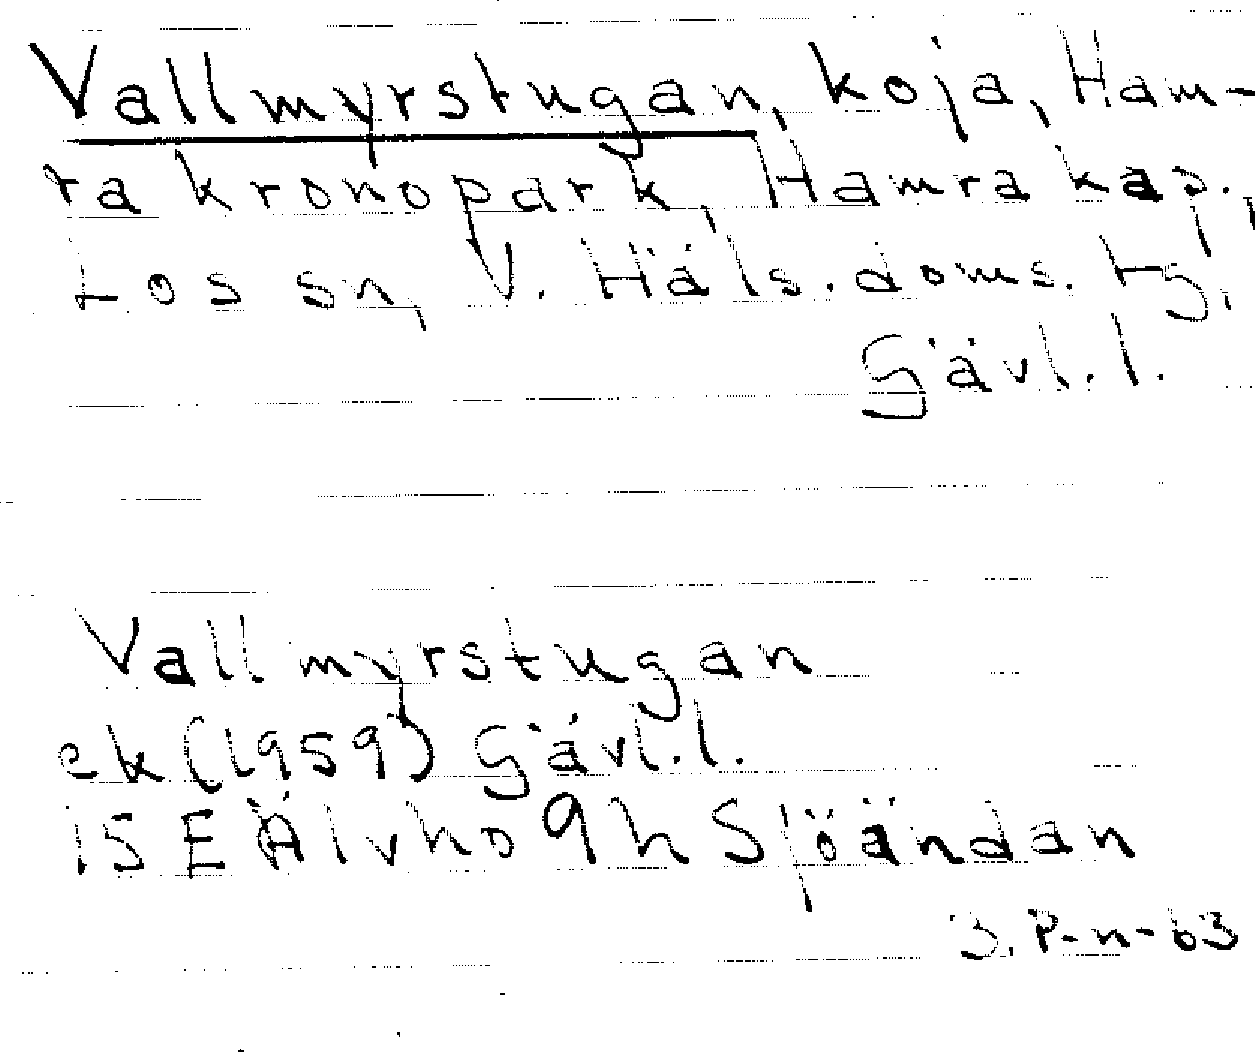 Vallmyrstugan, koja, Ham-
ra kronopark, Hamra kap.,
Los sn, V. Häls. doms. tg,
Gävl. l.
Vallmyrstugan
ek (1959) Gävl. l.
15 E Älvho 9 h Sjöändan
P-n-63